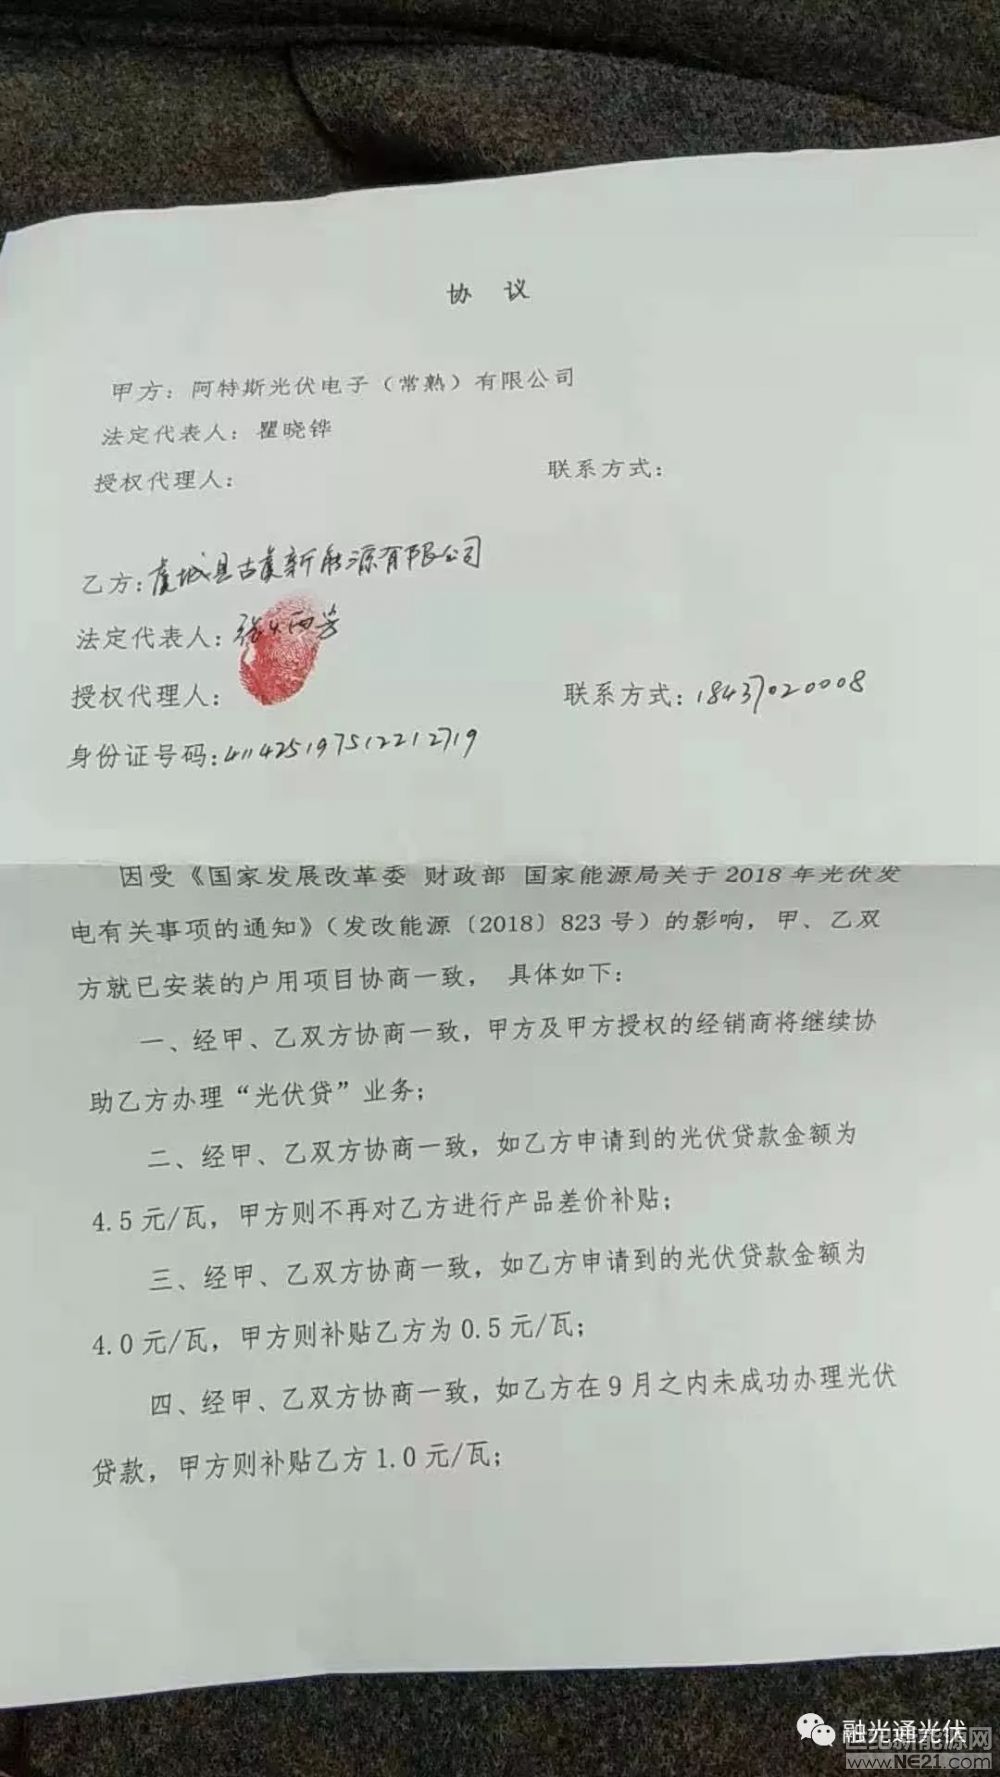 协 议
甲方：阿特斯光伏电子（常熟）有限公司
法定代表人：瞿晓铧
授权代理人：
联系方式：
乙方：虞城县古虞新能源有限公司
法定代表人：张
授权代理人：
联系方式：18437020008
身份证号码：411425197512212719
因受《国家发展改革委 财政部 国家能源局关于2018年光伏发
电有关事项的通知》（发改能源〔2018〕823号）的影响，甲、乙双
方就已安装的户用项目协商一致， 具体如下：
一、经甲、乙双方协商一致，甲方及甲方授权的经销商将继续协
助乙方办理“光伏贷”业务；
二、经甲、乙双方协商一致，如乙方申请到的光伏贷款金额为
4.5元/瓦，甲方则不再对乙方进行产品差价补贴；
三、经甲、乙双方协商一致，如乙方申请到的光伏贷款金额为
4.0元/瓦，甲方则补贴乙方为0.5元/瓦；
四、经甲、乙双方协商一致，如乙方在9月之内未成功办理光伏
贷款，甲方则补贴乙方1.0元/瓦；
融光通光伏
世纪新能源网
www.NE21.com